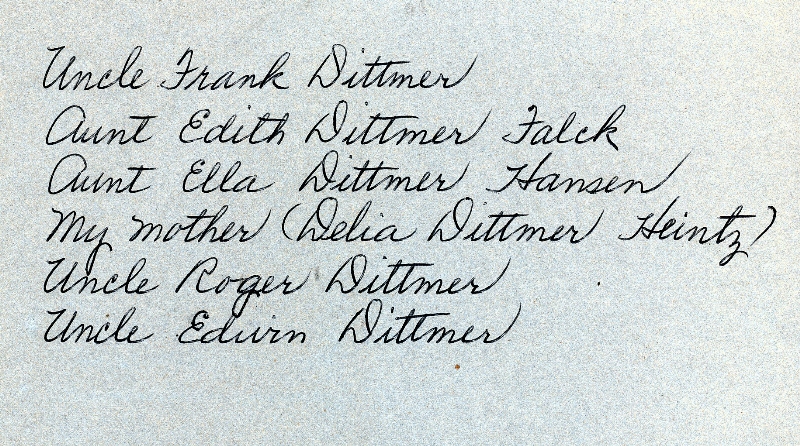 Uncle Frank Dittmer
Aunt Edith Dittmer Falck
Aunt Ella Dittmer Hansen
My mother (Delia Dittmer Heintz)
Uncle Roger Dittmer
Uncle Edwin Dittmer